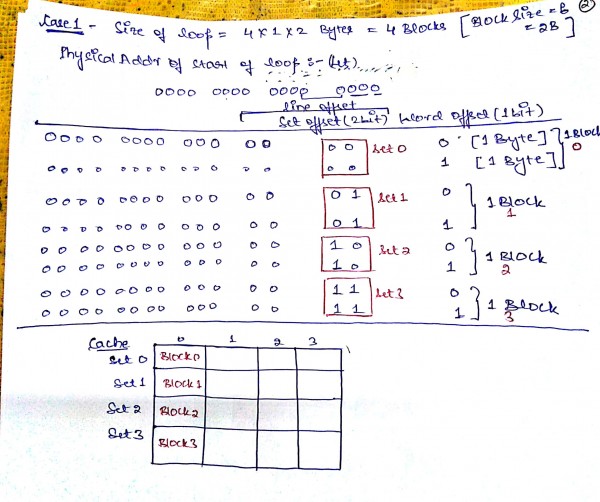 Case 1 - Size of loop = 4 X 1 X 2 Bytes = 4 Blocks [Block Size = B = 2B]
2
Physical Addr of Start of loop :- (let)
0000 0000 0000 0000
line offset
Set offset (2bit) Word offset (1bit)
0000 0000 000 00 00 Set 0 0 [1 Byte] 1 Block
0000 0000 000 00 00 1 [1 Byte] 0
0000 0000 000 00 01 Set 1 0 1 Block
0000 0000 000 00 01 1 1
0000 0000 000 00 10 Set 2 0 1 Block
0000 0000 000 00 10 1 2
0000 0000 000 00 11 Set 3 0 1 Block
0000 0000 000 00 11 1 3
Cache 0 1 2 3
Set 0 Block 0
Set 1 Block 1
Set 2 Block 2
Set 3 Block 3